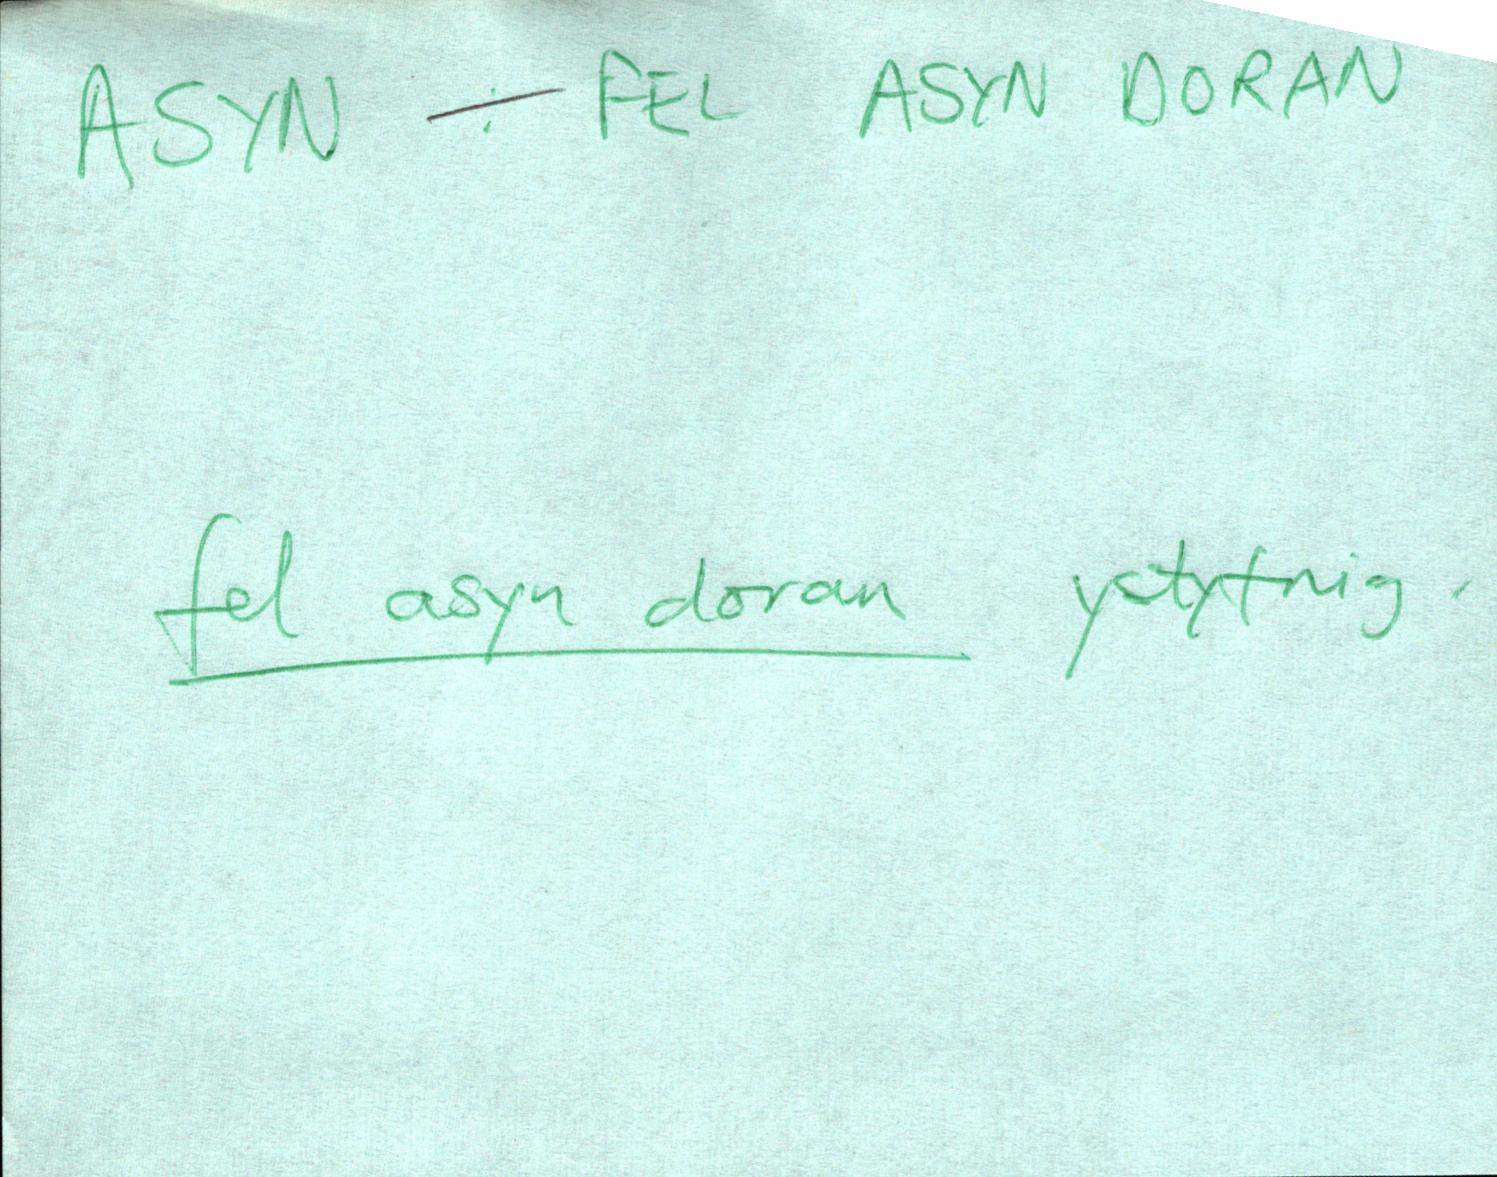 ASYN — FEL ASYN DORAN
fel asyn doran ystyfnig.